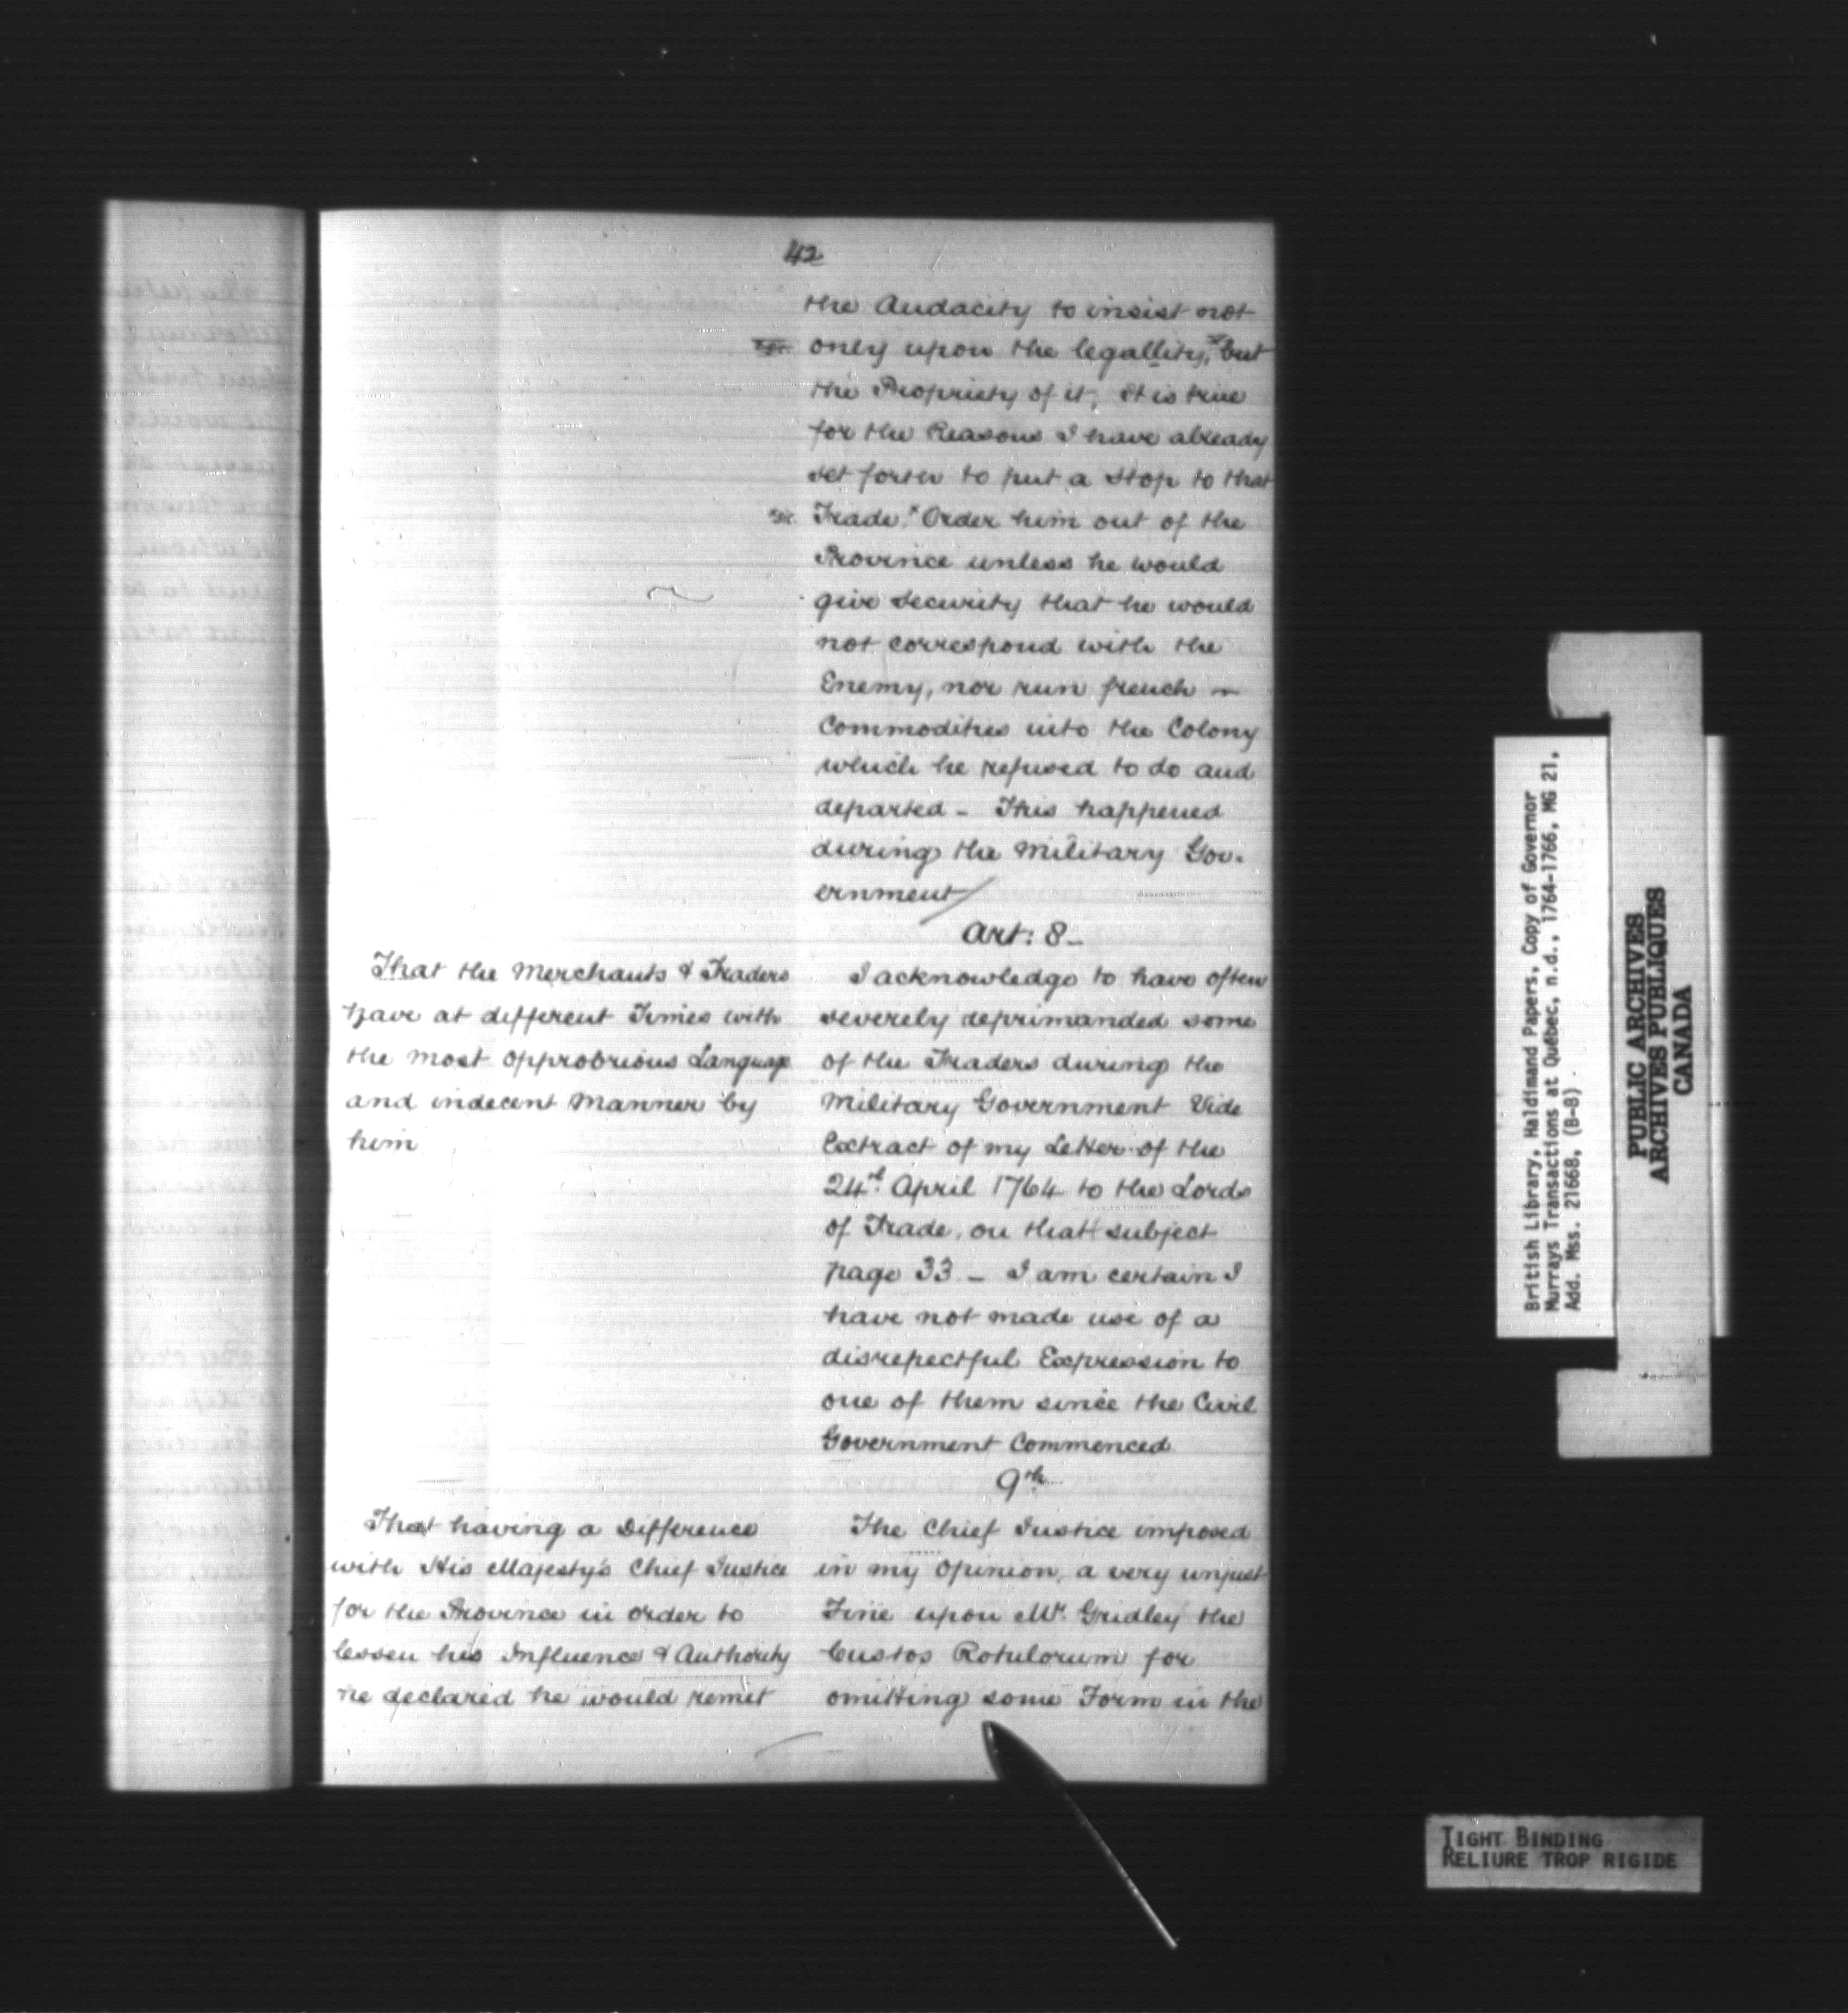 42
the Audacity to insist not
only upon the legallity,ˣ but
the Propriety of it; It is true
for the Reasons I have already
set forth to put a Stop to that
sic. Trade.ˣ Order him out of the
Province unless he would
give Security that he would
not correspond with the
Enemy, nor run french
Commodities into the Colony
which he refused to do and
departed - This happened
during the Military Gov-
ernment/
Art: 8-
That the Merchants & Traders
have at different Times with
the most opprobrious Language
and indecent Manner by
him
I acknowledge to have often
severely deprimanded some
of the Traders during the
Military Government Vide
Extract of my Letter of the
24th April 1764 to the Lords
of Trade, on that subject
page 33 - I am certain I
have not made use of a
disrepectful Expression to
one of them since the Civil
Government Commenced
9th
That having a Difference
with His Majesty's Chief Justice
for the Province in order to
lessen his Influence & Authority
he declared he would remit
The Chief Justice imposed
in my Opinion, a very unjust
Fine upon Mr. Gridley the
Custos Rotulorum for
omitting some Form in the
British Library, Haldimand Papers, Copy of Governor
Murrays Transactions at Québec, n.d., 1764-1766, MG 21,
Add. Mss. 21668, (B-8)
PUBLIC ARCHIVES
ARCHIVES PUBLIQUES
CANADA
TIGHT BINDING
RELIURE TROP RIGIDE